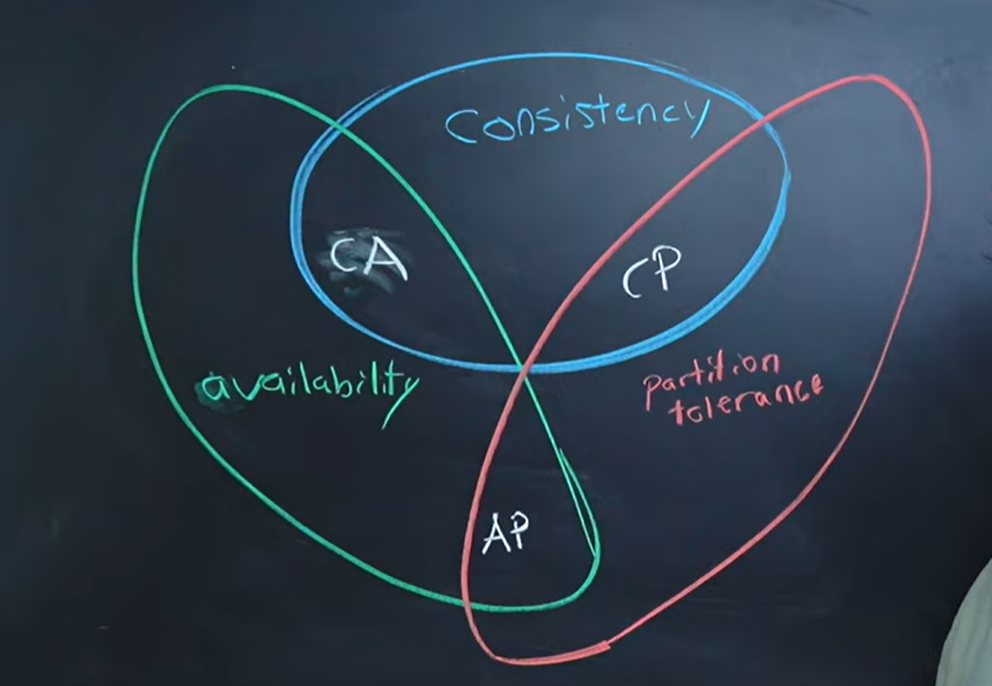 Consistency
CA
CP
availability
partition
tolerance
AP